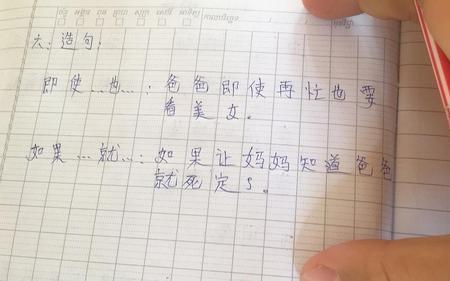 六、造句:
即使…也…:爸爸即使再忙也要
看美女。
如果…就…:如果让妈妈知道爸爸
就死定了。